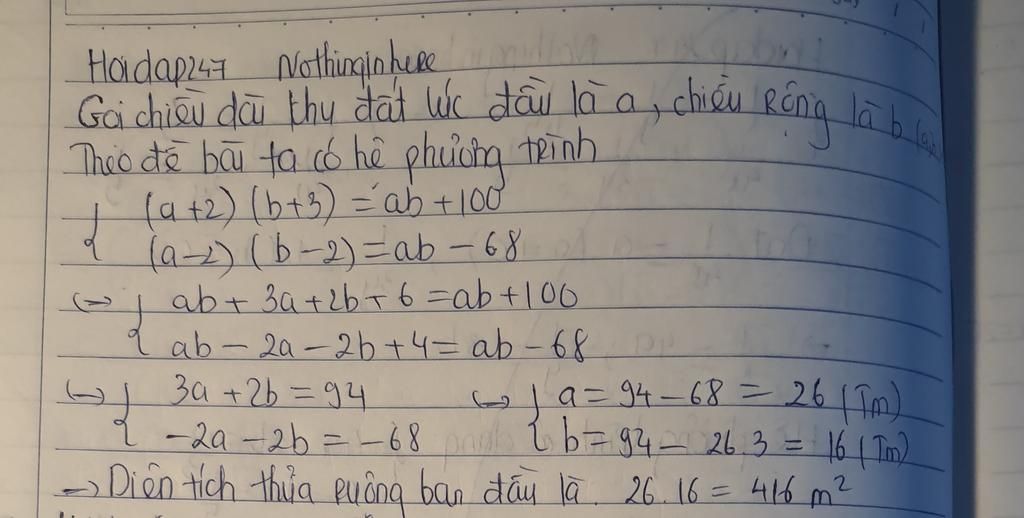 Hoidap247 Nothinginhere
Gọi chiều dài khu đất lúc đầu là a, chiều Rộng là b
Theo đề bài ta có hệ phương trình
(a+2) (b+3) = ab + 100
(a-2) (b-2) = ab - 68
<=> ab + 3a + 2b + 6 = ab + 100
ab - 2a - 2b + 4 = ab - 68
<=> 3a + 2b = 94 <=> a = 94 - 68 = 26 (Tm)
-2a - 2b = -68 b = 94 - 26.3 = 16 (Tm)
-> Diện tích thửa ruộng ban đầu là. 26.16 = 416 m²